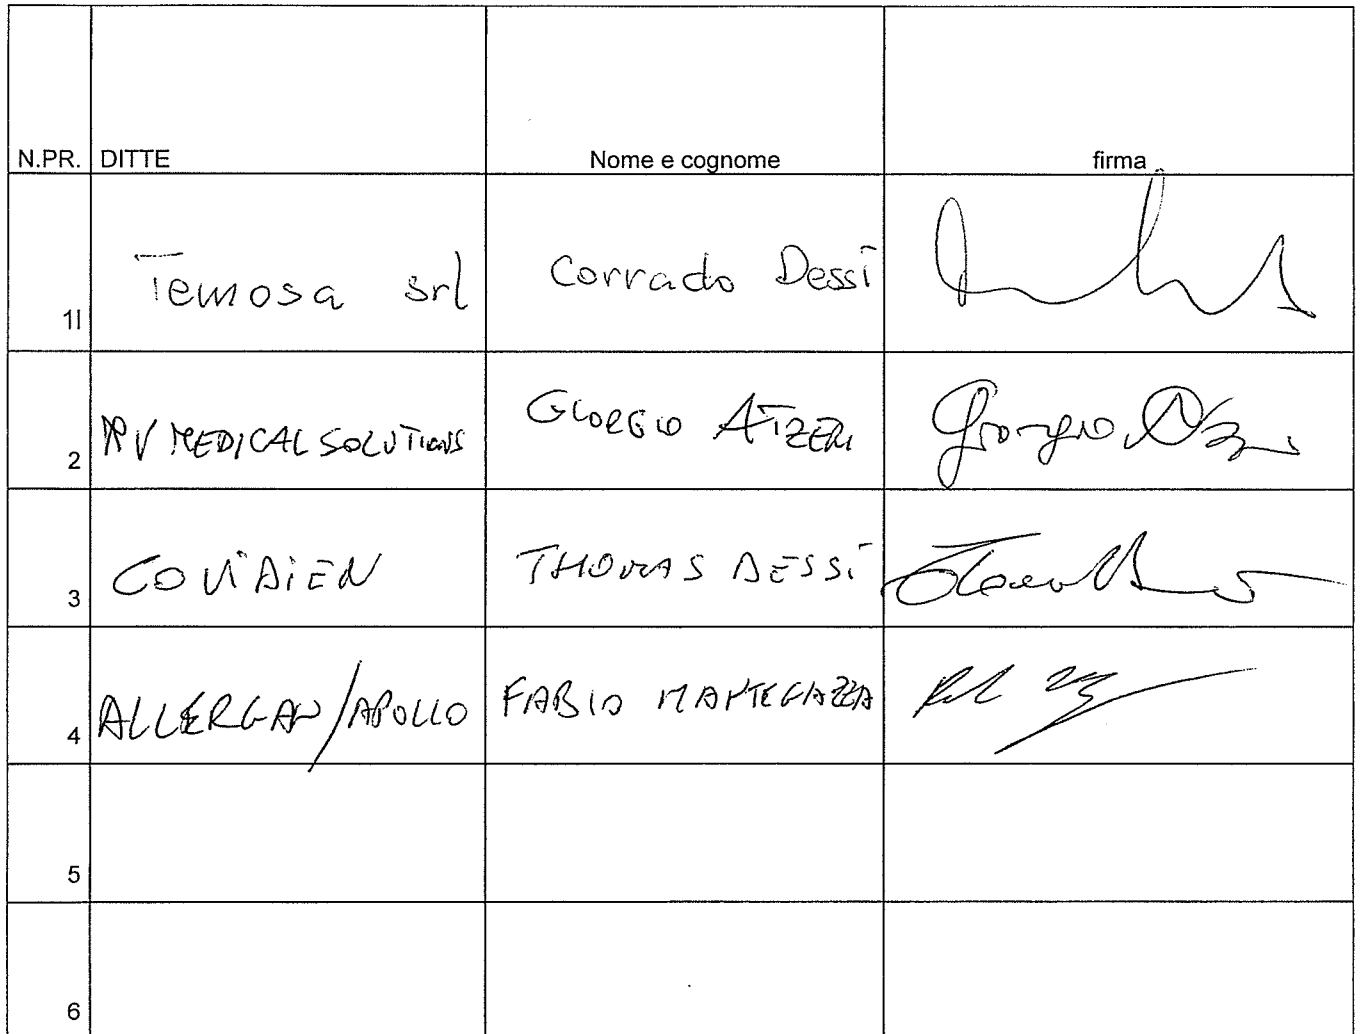 N.PR. DITTE Nome e cognome firma
1l Temosa srl Corrado Dessì
2 RV MEDICAL SOLUTIONS GIORGIO ATZERI Giorgio
3 COVIDIEN THOMAS DESSì
4 ALLERGAN/APOLLO FABIO MANTEGAZZA
5
6